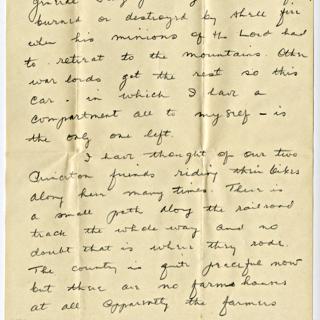 burned or destroyed by shell fire
when his minions of the Lord had
to retreat to the mountains. Other
war lords got the rest so this
car - in which I have a
compartment all to myself - is
the only one left.
I have thought of our two
friends riding their bikes
along here many times. There is
a small path along the railroad
track the whole way and no
doubt that is where they rode.
The country is quite peaceful now
but there are no farms houses
at all. Apparently the farmers